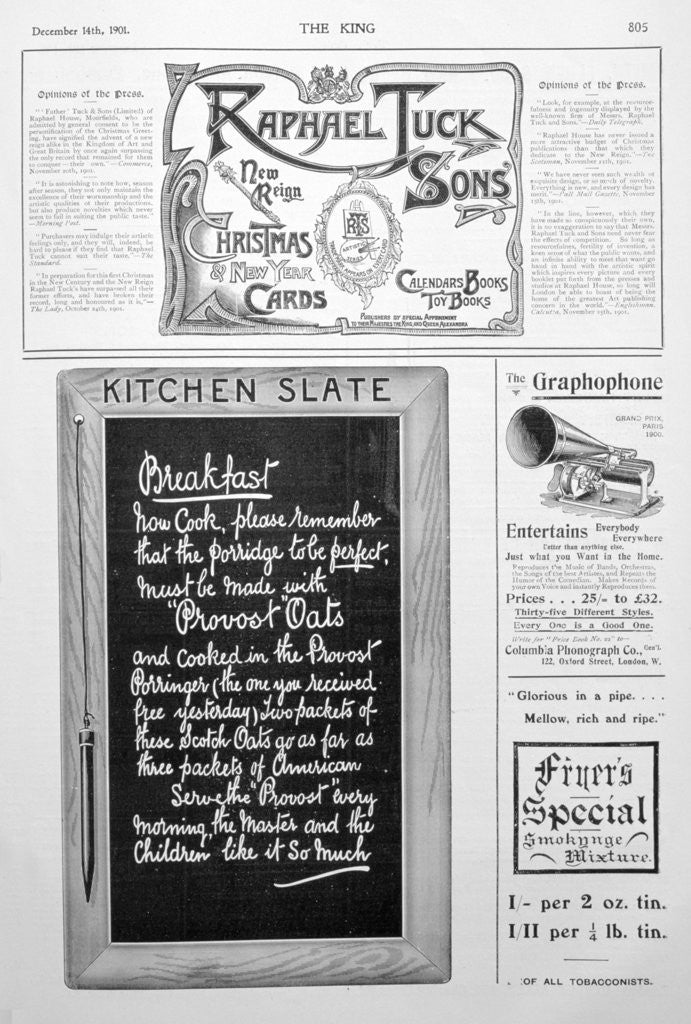 December 14th, 1901.
THE KING
805
Opinions of the Press.
"'Father' Tuck & Sons (Limited) of
Raphael House, Moorfields, who are
admitted by general consent to be the
personification of the Christmas Greet-
ing, have signified the advent of a new
reign alike in the Kingdom of Art and
Great Britain by once again surpassing
the only record that remained for them
to conquer—their own."—Commerce,
November 20th, 1901.
"It is astonishing to note how, season
after season, they not only maintain the
excellence of their workmanship and the
artistic qualities of their productions,
but also produce novelties which never
seem to fail in suiting the public taste."
—Morning Post.
"Purchasers may indulge their artistic
feelings only, and they will, indeed, be
hard to please if they find that Raphael
Tuck cannot suit their taste."—The
Standard.
"In preparation for this first Christmas
in the New Century and the New Reign
Raphael Tuck's have surpassed all their
former efforts, and have broken their
record, long and honoured as it is,"—
The Lady, October 24th, 1901.
RAPHAEL TUCK
& SONS'
New
Reign
CHRISTMAS
& NEW YEAR
CARDS
CALENDARS BOOKS
TOY BOOKS
PUBLISHERS BY SPECIAL APPOINTMENT
TO THEIR MAJESTIES THE KING AND QUEEN ALEXANDRA
Opinions of the Press.
"Look, for example, at the resource-
fulness and ingenuity displayed by the
well-known firm of Messrs. Raphael
Tuck and Sons."—Daily Telegraph.
"Raphael House has never issued a
more attractive budget of Christmas
publications than that which they
dedicate to the New Reign."—The
Scotsman, November 21st, 1901.
"We have never seen such wealth of
exquisite design, or so much of novelty.
Everything is new, and every design has
merit."—Pall Mall Gazette, November
13th, 1901.
"In the line, however, which they
have made so conspicuously their own,
it is no exaggeration to say that Messrs.
Raphael Tuck and Sons need never fear
the effects of competition. So long as
resourcefulness, fertility of invention, a
keen sense of what the public wants, and
an infinite ability to meet that want go
hand in hand with the artistic spirit
which inspires every picture and every
booklet put forth from the presses and
studios at Raphael House, so long will
London be able to boast of being the
home of the greatest Art publishing
concern in the world."—Englishman,
Calcutta, November 15th, 1901.
KITCHEN SLATE
Breakfast
Now Cook, please remember
that the porridge to be perfect,
must be made with
"Provost" Oats
and Cooked in the Provost
Porringer (the one you received
free yesterday) Two packets of
these Scotch Oats go as far as
three packets of American
Serve the "Provost" every
morning, the Master and the
Children like it So Much
The Graphophone
GRAND PRIX,
PARIS
1900.
Entertains Everybody
Everywhere
Better than anything else.
Just what you Want in the Home.
Reproduces the Music of Bands, Orchestras,
the Songs of the best Artistes, and Repeats the
Humor of the Comedian. Makes Records of
your own Voice and instantly Reproduces them.
Prices . . . 25/- to £32.
Thirty-five Different Styles.
Every One is a Good One.
Write for "Price Book No. 22" to—
Columbia Phonograph Co., Gen'l.
122, Oxford Street, London, W.
"Glorious in a pipe. . . .
Mellow, rich and ripe."
Fryer's
Special
Smokynge
Mixture.
1/- per 2 oz. tin.
1/11 per ¼ lb. tin.
OF ALL TOBACCONISTS.